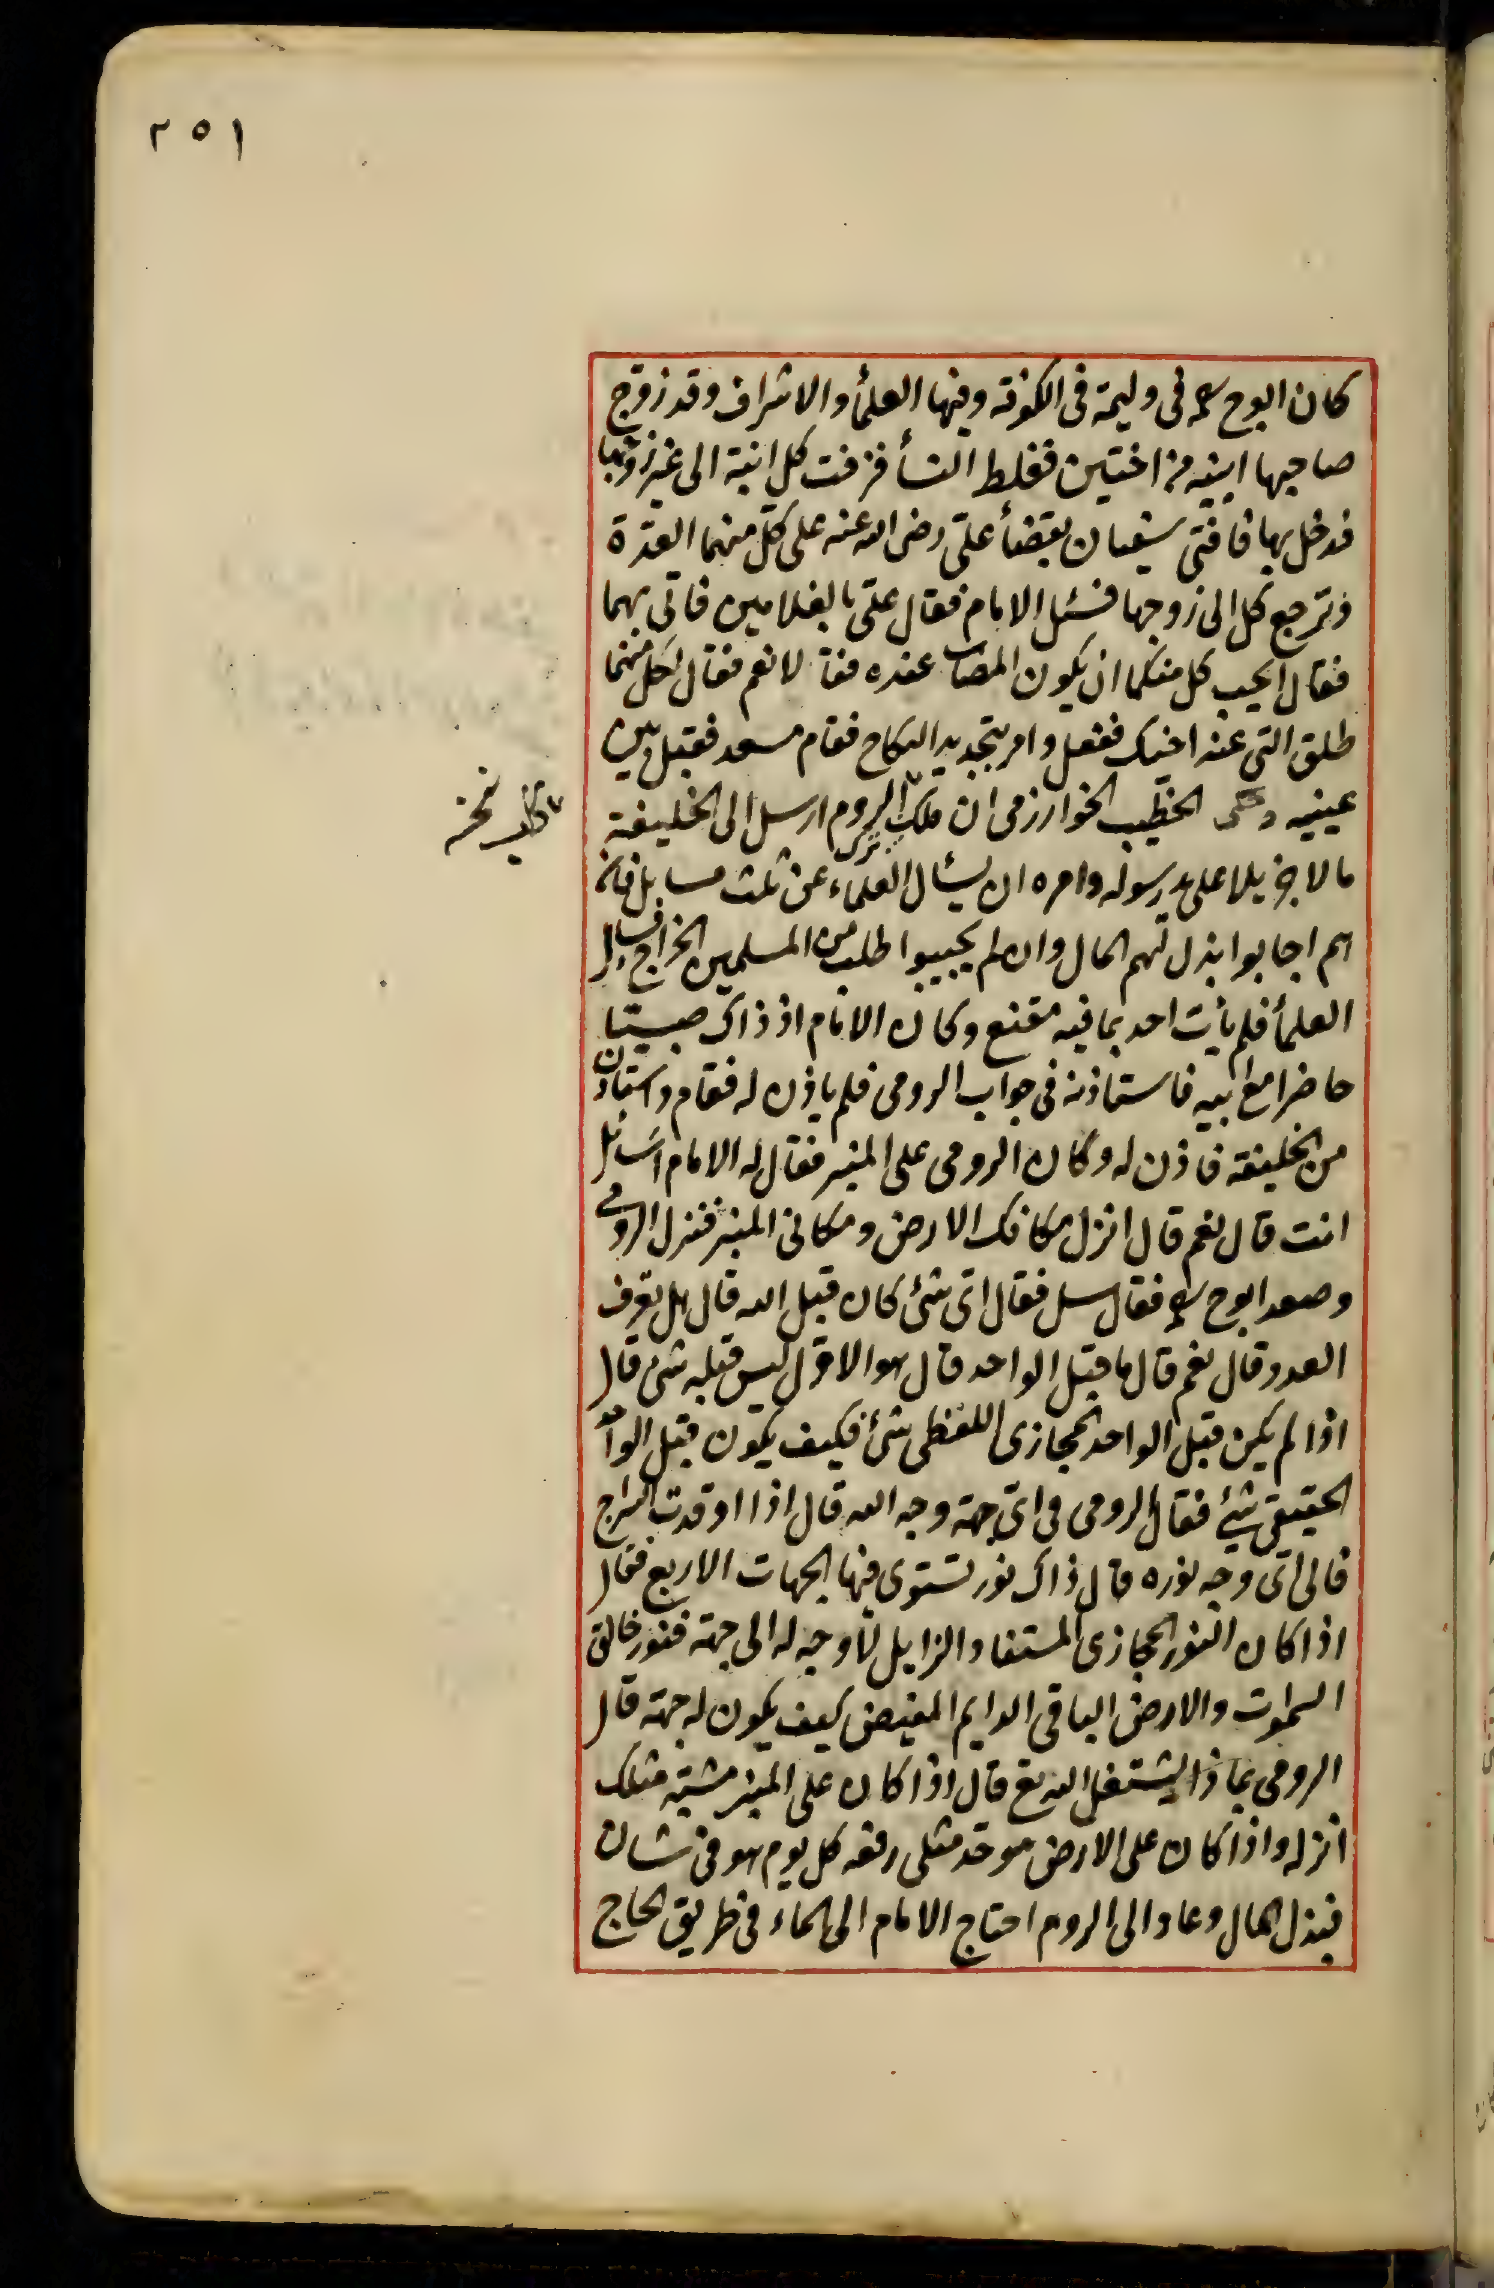 ٢٥١
كان ابوح رح فى وليمة فى الكوفة وفيها العلمأ والاشراف وقد زوج
صاحبها ابنيه من اختين فغلط النسأ فزفت كل ابنة الى غير زوجها
فدخل بها فافتى سفيان بقضأ على رضى الله عنه على كل منهما العدة
وترجع كل الى زوجها فسئل الامام فقال على بالغلامين فاتى بهما
فقال ايحب كل منكما ان يكون المصاب عنده فقالا نعم فقال لكل منهما
طلق التى عند اخيك ففعل وامر بتجديد النكاح فقام مسعر فقبل بين
عينيه وحكى الخطيب الخوارزمى ان ملك الروم ارسل الى الخليفة
مالا جزيلا على يد رسوله وامره ان يسأل العلماء عن ثلث مسايل فان
هم اجابوا بذل لهم المال وان لم يجيبوا طلب من المسلمين الخراج فسأل
العلمأ فلم يأت احد بما فيه مقنع وكان الامام اذ ذاك صبيا
حاضرا مع ابيه فاستاذنه فى جواب الرومى فلم ياذن له فقام واستاذن
من الخليفة فاذن له وكان الرومى على المنبر فقال له الامام اسائل
انت قال نعم قال انزل مكانك الارض ومكانى المنبر فنزل الرومى
وصعد ابوح رح فقال سل فقال اى شئ كان قبل الله قال هل تعرف
العدد قال نعم قال ما قبل الواحد قال هو الاول ليس قبله شئ قال
اذا لم يكن قبل الواحد المجازى اللفظى شئ فكيف يكون قبل الواحد
الحقيقى شئ فقال الرومى فى اى جهة وجه الله قال اذا اوقدت السراج
فالى اى وجه نوره قال ذاك نور تستوى فيها الجهات الاربع فقال
اذا كان النور المجازى المستفاد الزايل لا وجه له الى جهة فنور خالق
السموت والارض الباقى الدايم المفيض كيف يكون له جهة قال
الرومى بماذا يشتغل الله تع قال اذا كان على المنبر مشبه مثلك
انزله واذا كان على الارض موحد مثلى رفعه كل يوم هو فى شان
فبذل المال وعاد الى الروم احتاج الامام الى الماء فى طريق الحاج